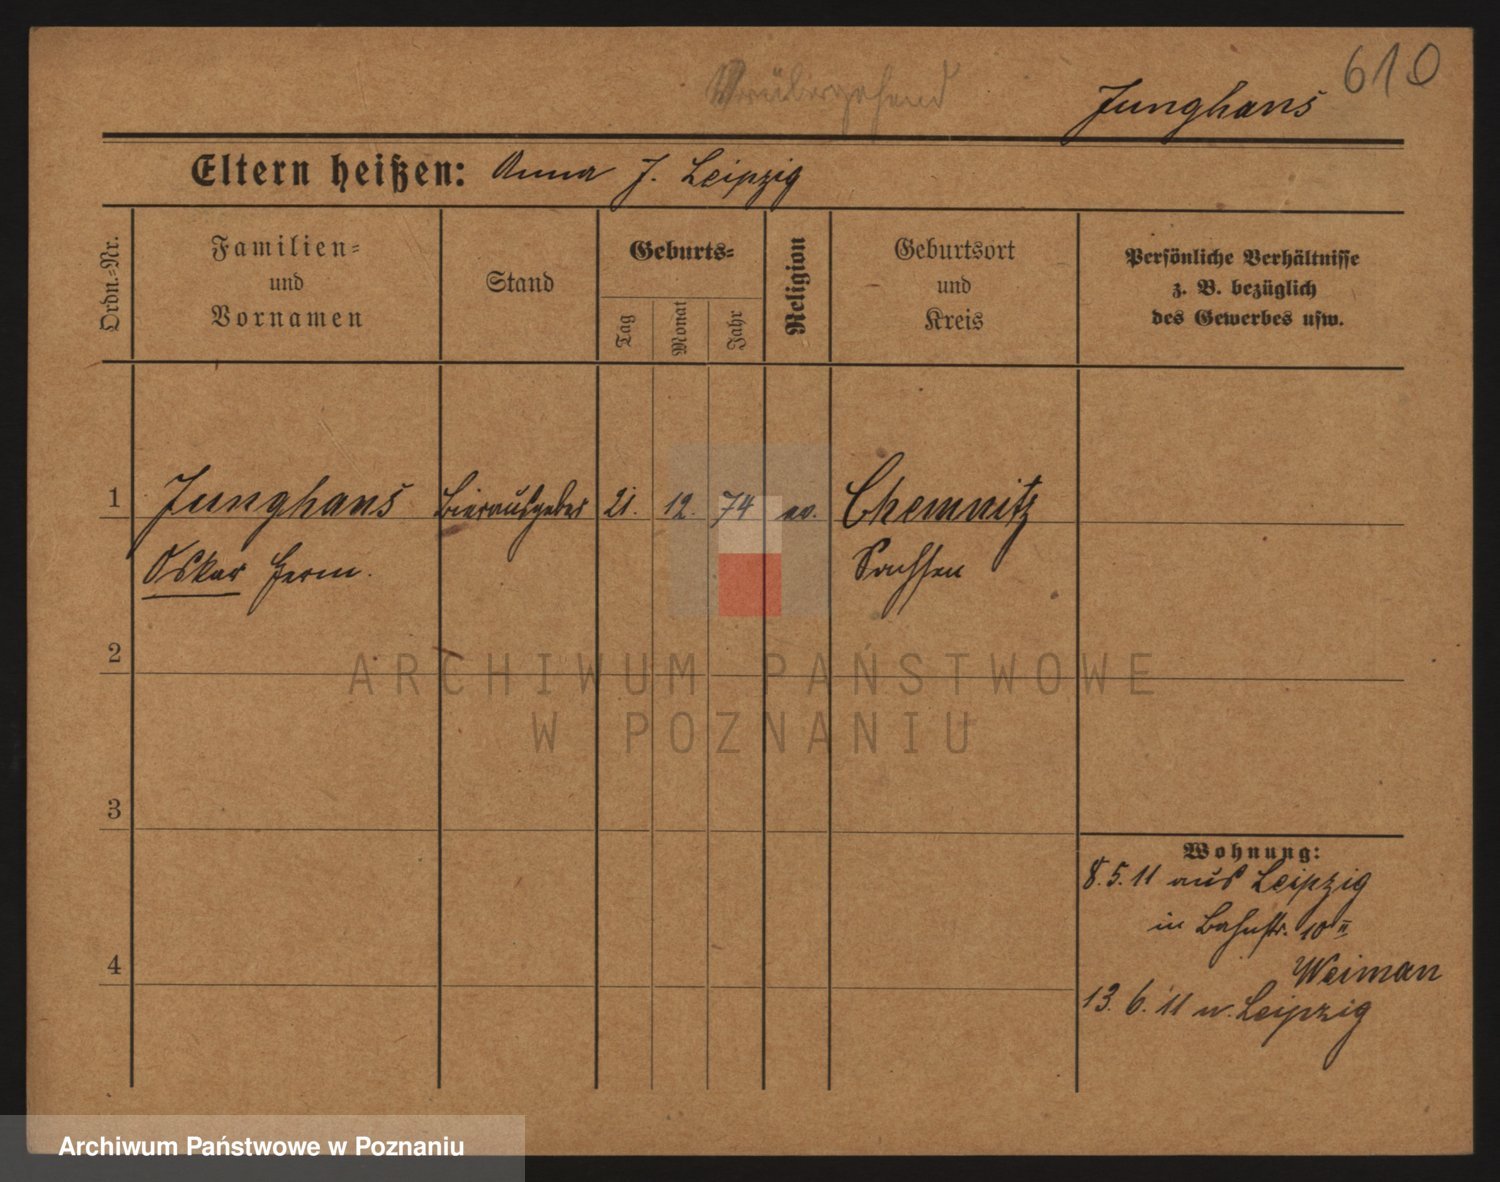 610
Vorübergehend
Junghans
Eltern heißen: Anna J. Leipzig
Ordn.-Nr.
Familien-
und
Vornamen
Stand
Geburts-
Tag
Monat
Jahr
Religion
Geburtsort
und
Kreis
Persönliche Verhältnisse
z. B. bezüglich
des Gewerbes usw.
1 Junghans Bierausgeber 21. 12. 74 ev. Chemnitz
Oskar Herm. Sachsen
2
3
4
Wohnung:
8.5.11 aus Leipzig
in Bahnstr. 10 II
Weiman
13.6.11 n. Leipzig
ARCHIWUM PAŃSTWOWE
W POZNANIU
Archiwum Państwowe w Poznaniu